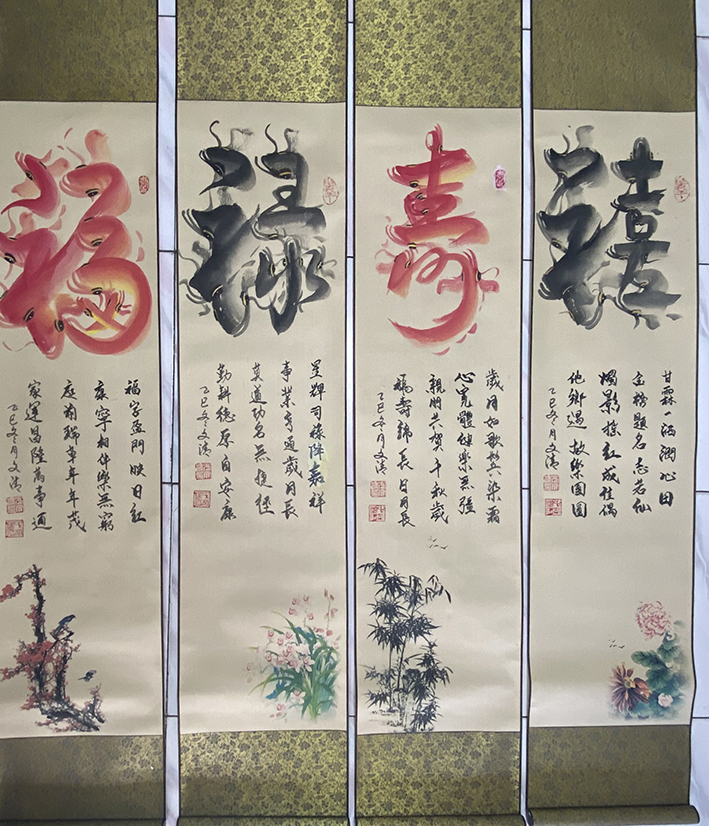 福
福字盈門映日紅
康寧相伴樂無窮
庭前瑞草年年茂
家運昌隆萬事通
乙巳冬月文
禄
星輝司禄降嘉祥
事業亨通歲月長
莫道功名無捷徑
勤耕德厚自安康
乙巳冬月文
寿
歲月如歌鬢染霜
心寬體健樂無疆
親朋共賀千秋歲
福壽綿長日月長
乙巳冬月文
禧
甘霖一洒潤心田
金榜題名志若仙
燭影搖紅成佳偶
他鄉遇故樂團圓
乙巳冬月文